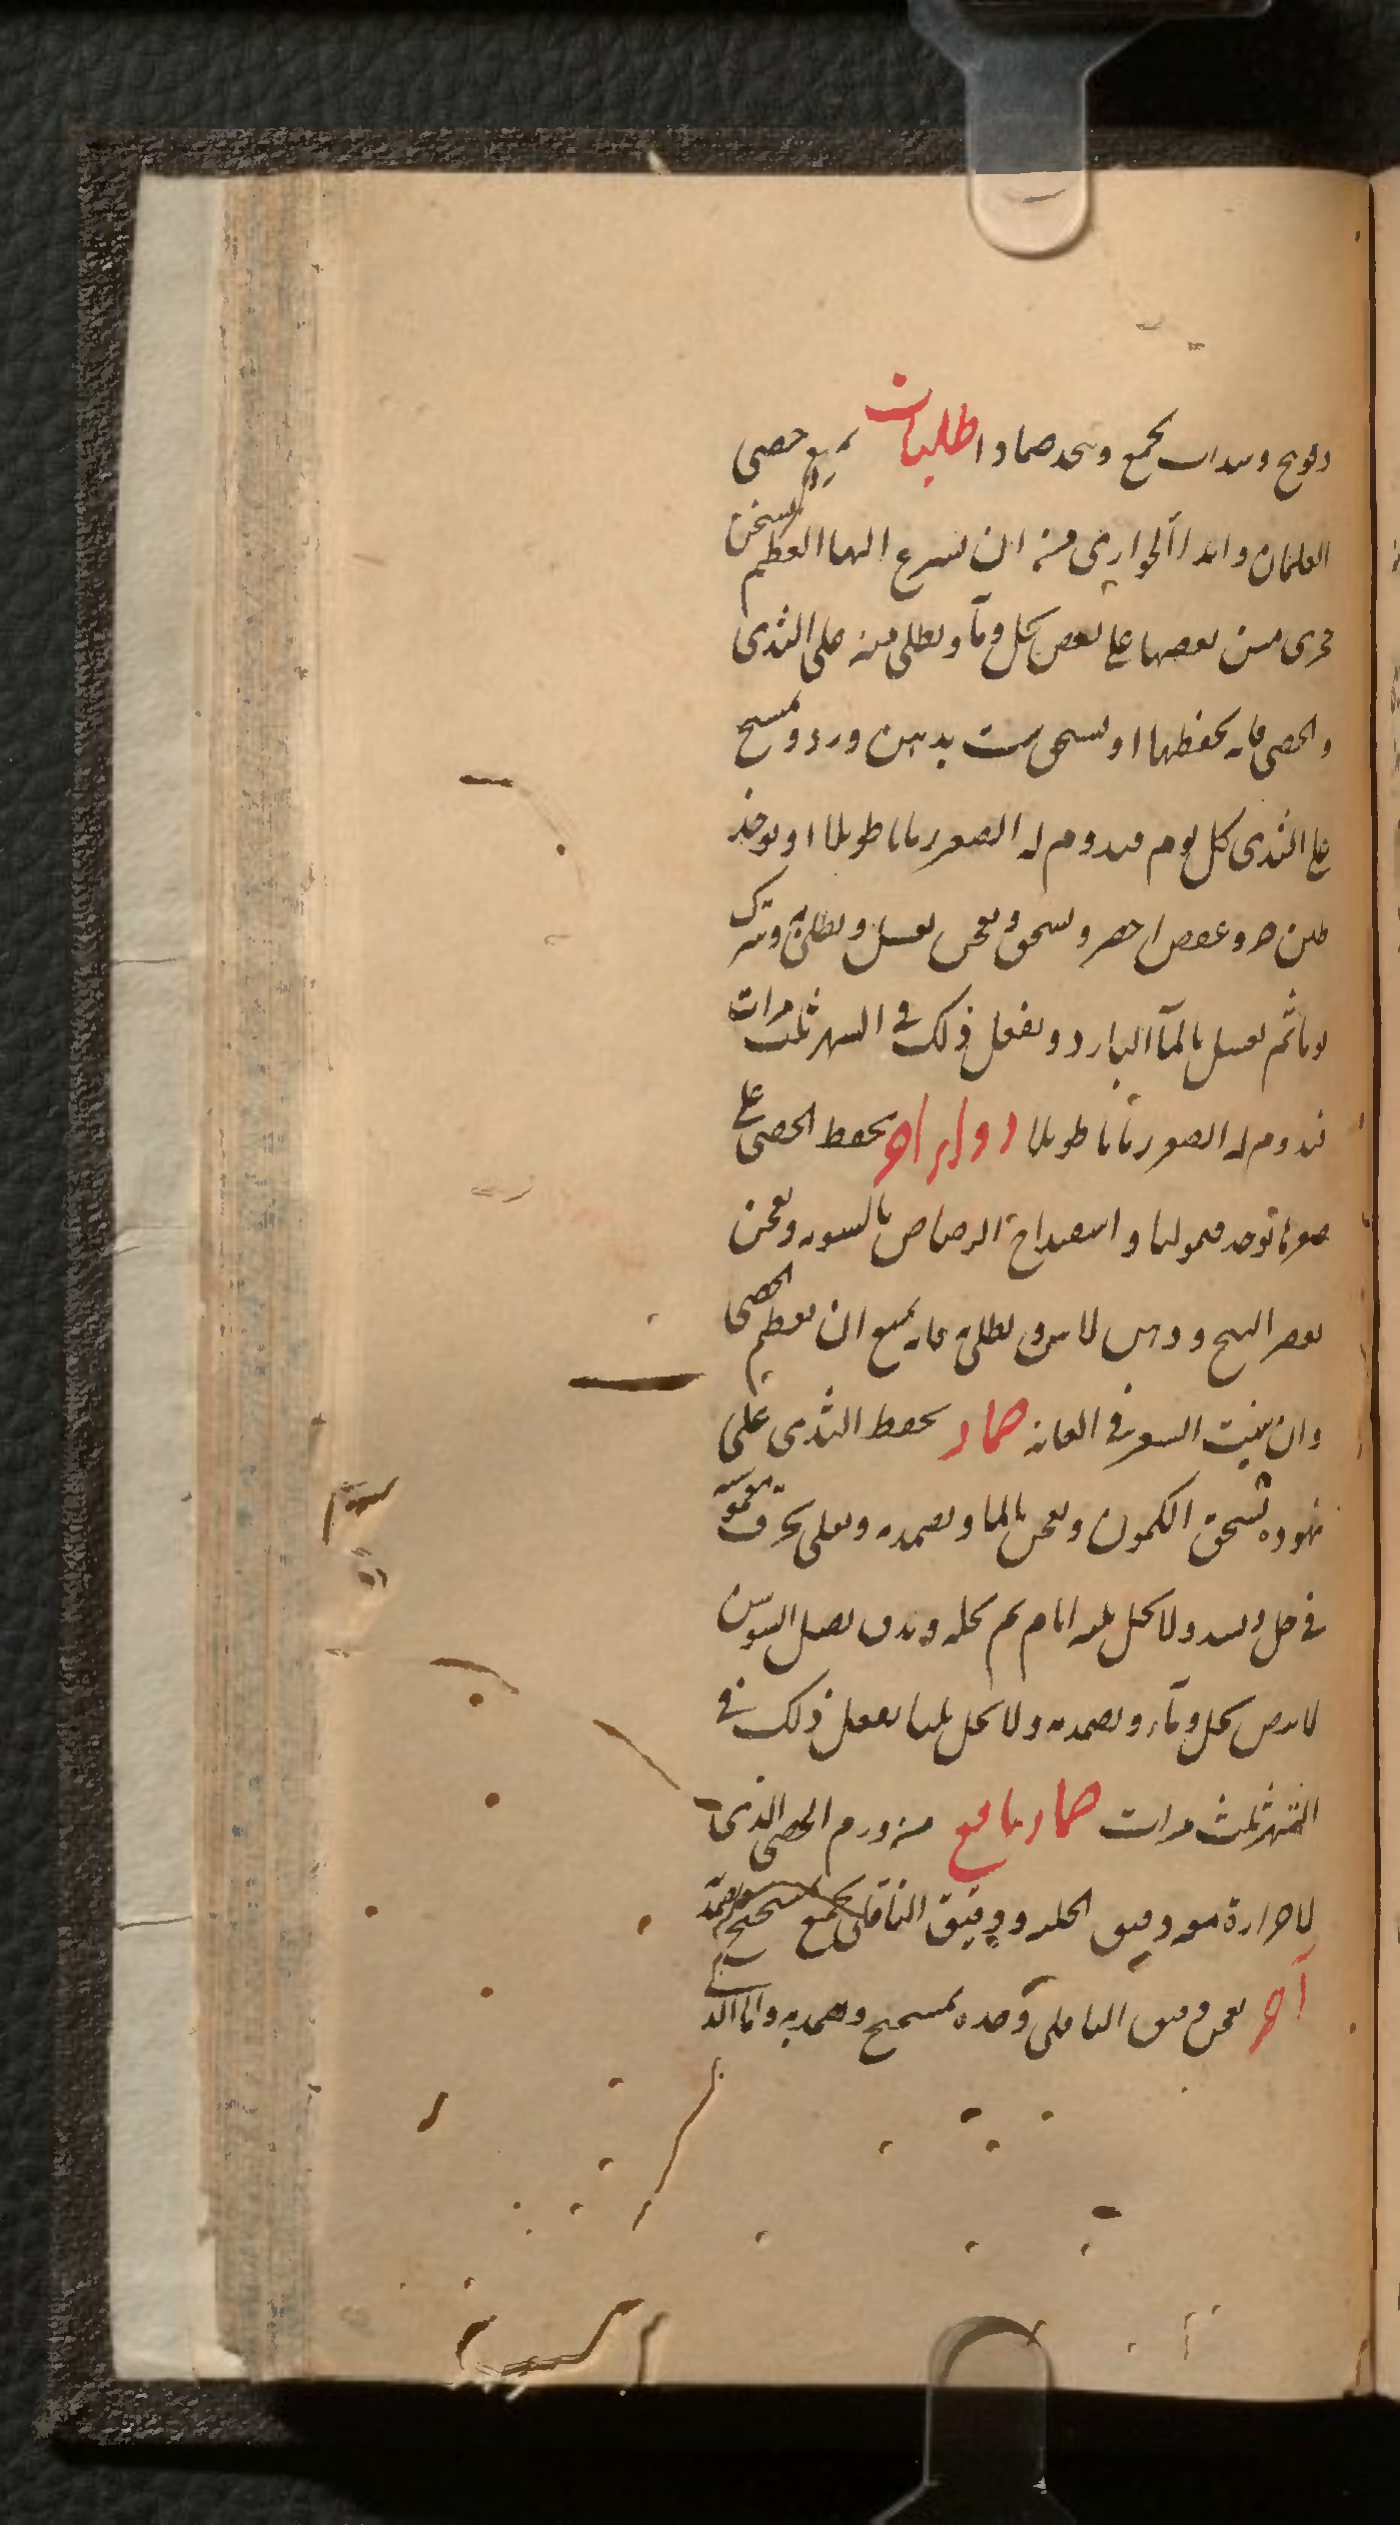 وفوح وسداب يجمع ويتخذ ضمادا طليات يمنع خصي
الغلمان واثدا الجواري من ان يسرع اليها العظم يسخن
حجرى مسن بعضها على بعض بخل وماء ويطلى منه على الثدى
والخصى فانه يحفظها او يسحق شب بدهن ورد ويمسح
على الثدى كل يوم فيدوم له الصغر زمانا طويلا او يوخذ
طين حر وعفص اخضر ويسحق ويعجن بعسل ويطلى ويترك
يوما ثم يغسل بالماء البارد ويفعل ذلك فى الشهر ثلث مرات
فيدوم له الصغر زمانا طويلا دواء اخر يحفظ الخصى على
صغرها توخذ قيموليا واسفيداج الرصاص بالسويه ويعجن
بعصر البنج ودهن لاس ويطلى فانه يمنع ان يعظم الخصى
وان ينبت الشعر فى العانه ضماد يحفظ الثدى على
نهوده يسحق الكمون ويعجن بالماء ويضمد به ويعلى بخرق مغموسه
فى خل ويشد ولا يحل ثلثه ايام ثم يحله ويدق بصل السوسن
لابيض بخل وماء ويضمد به ولا يحل ثلثا يفعل ذلك فى
الشهر ثلث مرات ضماد نافع من ورم الخصى الذى
لا حرارة معه دقيق الحلبه ودقيق الباقلى يجمع بميبختج ويضمد
آخر يعجن دقيق الباقلى وحده بميبختج ويضمد به واما الذ